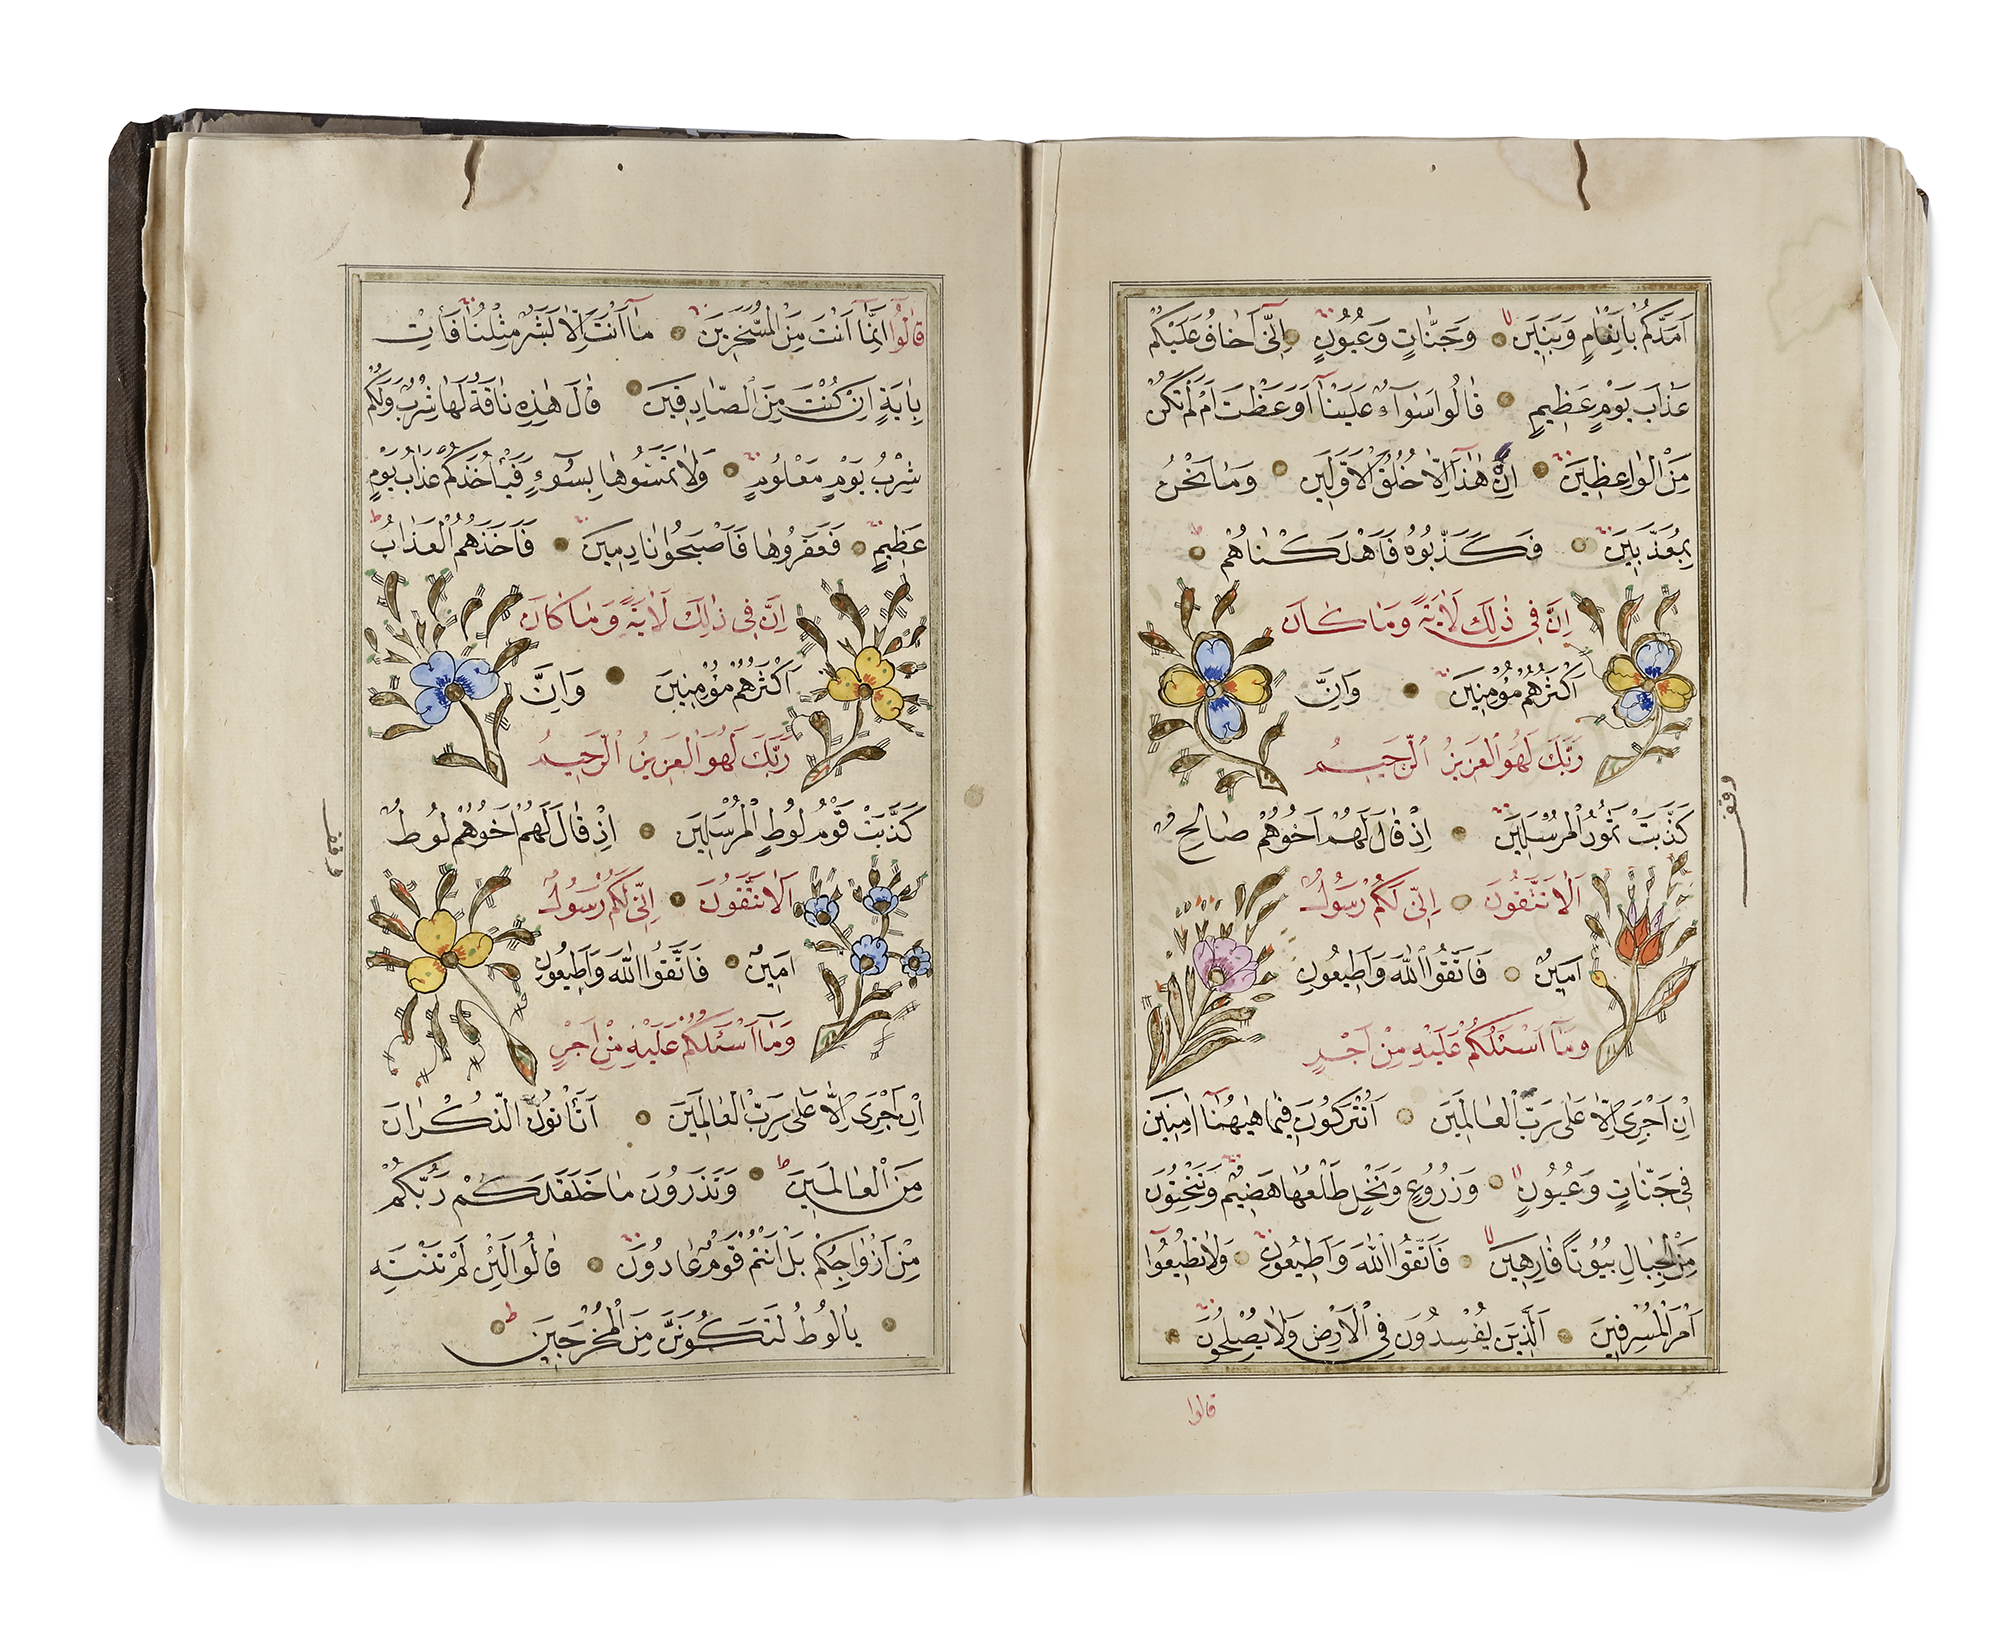 اَمَدَّكُمْ بِاَنْعَامٍ وَبَنِينَ وَجَنَّاتٍ وَعُيُونٍ اِنِّى اَخَافُ عَلَيْكُمْ
عَذَابَ يَوْمٍ عَظِيمٍ قَالُوا سَوَآءٌ عَلَيْنَآ اَوَعَظْتَ اَمْ لَمْ تَكُنْ
مِنَ الْوَاعِظِينَ اِنْ هٰذَآ اِلَّا خُلُقُ الْاَوَّلِينَ وَمَا نَحْنُ
بِمُعَذَّبِينَ فَكَذَّبُوهُ فَاَهْلَكْنَاهُمْ
اِنَّ فِى ذٰلِكَ لَاٰيَةً وَمَا كَانَ
اَكْثَرُهُمْ مُؤْمِنِينَ وَاِنَّ
رَبَّكَ لَهُوَ الْعَزِيزُ الرَّحِيمُ
كَذَّبَتْ ثَمُودُ الْمُرْسَلِينَ اِذْ قَالَ لَهُمْ اَخُوهُمْ صَالِحٌ
اَلَا تَتَّقُونَ اِنِّى لَكُمْ رَسُولٌ
اَمِينٌ فَاتَّقُوا اللّٰهَ وَاَطِيعُونِ
وَمَآ اَسْئَلُكُمْ عَلَيْهِ مِنْ اَجْرٍ
اِنْ اَجْرِىَ اِلَّا عَلٰى رَبِّ الْعَالَمِينَ اَتُتْرَكُونَ فِيمَا هٰهُنَآ اٰمِنِينَ
فِى جَنَّاتٍ وَعُيُونٍ وَزُرُوعٍ وَنَخْلٍ طَلْعُهَا هَضِيمٌ وَتَنْحِتُونَ
مِنَ الْجِبَالِ بُيُوتًا فَارِهِينَ فَاتَّقُوا اللّٰهَ وَاَطِيعُونِ وَلَا تُطِيعُوٓا
اَمْرَ الْمُسْرِفِينَ اَلَّذِينَ يُفْسِدُونَ فِى الْاَرْضِ وَلَا يُصْلِحُونَ
قالوا
وقف
قَالُوٓا اِنَّمَآ اَنْتَ مِنَ الْمُسَحَّرِينَ مَآ اَنْتَ اِلَّا بَشَرٌ مِثْلُنَا فَأْتِ
بِاٰيَةٍ اِنْ كُنْتَ مِنَ الصَّادِقِينَ قَالَ هٰذِهِ نَاقَةٌ لَهَا شِرْبٌ وَلَكُمْ
شِرْبُ يَوْمٍ مَعْلُومٍ وَلَا تَمَسُّوهَا بِسُوٓءٍ فَيَأْخُذَكُمْ عَذَابُ يَوْمٍ
عَظِيمٍ فَعَقَرُوهَا فَاَصْبَحُوا نَادِمِينَ فَاَخَذَهُمُ الْعَذَابُ
اِنَّ فِى ذٰلِكَ لَاٰيَةً وَمَا كَانَ
اَكْثَرُهُمْ مُؤْمِنِينَ وَاِنَّ
رَبَّكَ لَهُوَ الْعَزِيزُ الرَّحِيمُ
كَذَّبَتْ قَوْمُ لُوطٍ الْمُرْسَلِينَ اِذْ قَالَ لَهُمْ اَخُوهُمْ لُوطٌ
اَلَا تَتَّقُونَ اِنِّى لَكُمْ رَسُولٌ
اَمِينٌ فَاتَّقُوا اللّٰهَ وَاَطِيعُونِ
وَمَآ اَسْئَلُكُمْ عَلَيْهِ مِنْ اَجْرٍ
اِنْ اَجْرِىَ اِلَّا عَلٰى رَبِّ الْعَالَمِينَ اَتَأْتُونَ الذُّكْرَانَ
مِنَ الْعَالَمِينَ وَتَذَرُونَ مَا خَلَقَ لَكُمْ رَبُّكُمْ
مِنْ اَزْوَاجِكُمْ بَلْ اَنْتُمْ قَوْمٌ عَادُونَ قَالُوا لَئِنْ لَمْ تَنْتَهِ
يَالُوطُ لَتَكُونَنَّ مِنَ الْمُخْرَجِينَ
وقف